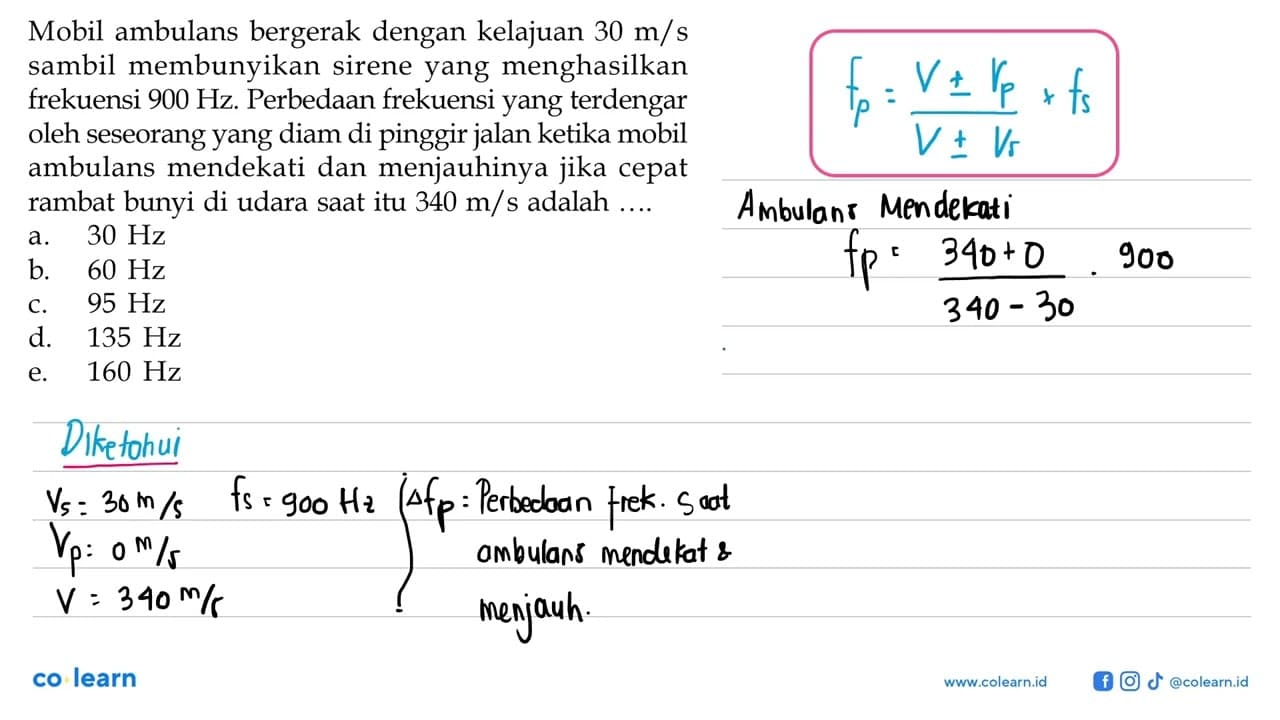 Mobil ambulans bergerak dengan kelajuan 30 m/s
sambil membunyikan sirene yang menghasilkan
frekuensi 900 Hz. Perbedaan frekuensi yang terdengar
oleh seseorang yang diam di pinggir jalan ketika mobil
ambulans mendekati dan menjauhinya jika cepat
rambat bunyi di udara saat itu 340 m/s adalah ....
a. 30 Hz
b. 60 Hz
c. 95 Hz
d. 135 Hz
e. 160 Hz
fp = V ± Vp / V ± Vs × fs
Ambulans Mendekati
fp = 340 + 0 / 340 - 30 . 900
Diketahui
Vs = 30 m/s fs = 900 Hz Δfp = Perbedaan frek. saat
Vp = 0 m/s ambulans mendekat &
V = 340 m/s menjauh.
co learn
www.colearn.id
@colearn.id